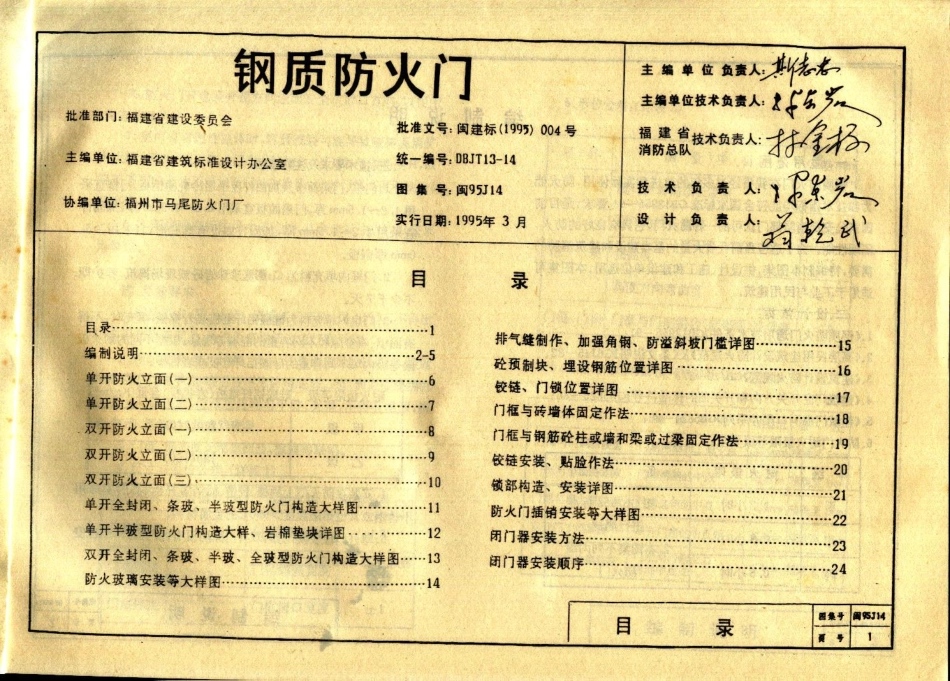 钢质防火门
批准部门：福建省建设委员会
主编单位：福建省建筑标准设计办公室
协编单位：福州市马尾防火门厂
批准文号：闽建标(1995)004号
统一编号：DBJT13-14
图集号：闽95J14
实行日期：1995年3月
主编单位负责人：
主编单位技术负责人：
福建省消防总队技术负责人：
技术负责人：
设计负责人：
目 录
目录……1
编制说明……2-5
单开防火立面(一)……6
单开防火立面(二)……7
双开防火立面(一)……8
双开防火立面(二)……9
双开防火立面(三)……10
单开全封闭、条玻、半玻型防火门构造大样图……11
单开半玻型防火门构造大样、岩棉垫块详图……12
双开全封闭、条玻、半玻、全玻型防火门构造大样图……13
防火玻璃安装等大样图……14
排气缝制作、加强角钢、防溢斜坡门槛详图……15
砼预制块、埋设钢筋位置详图……16
铰链、门锁位置详图……17
门框与砖墙体固定作法……18
门框与钢筋砼柱或墙和梁或过梁固定作法……19
铰链安装、贴脸作法……20
锁部构造、安装详图……21
防火门插销安装等大样图……22
闭门器安装方法……23
闭门器安装顺序……24
目 录
图集号 闽95J14
页号 1